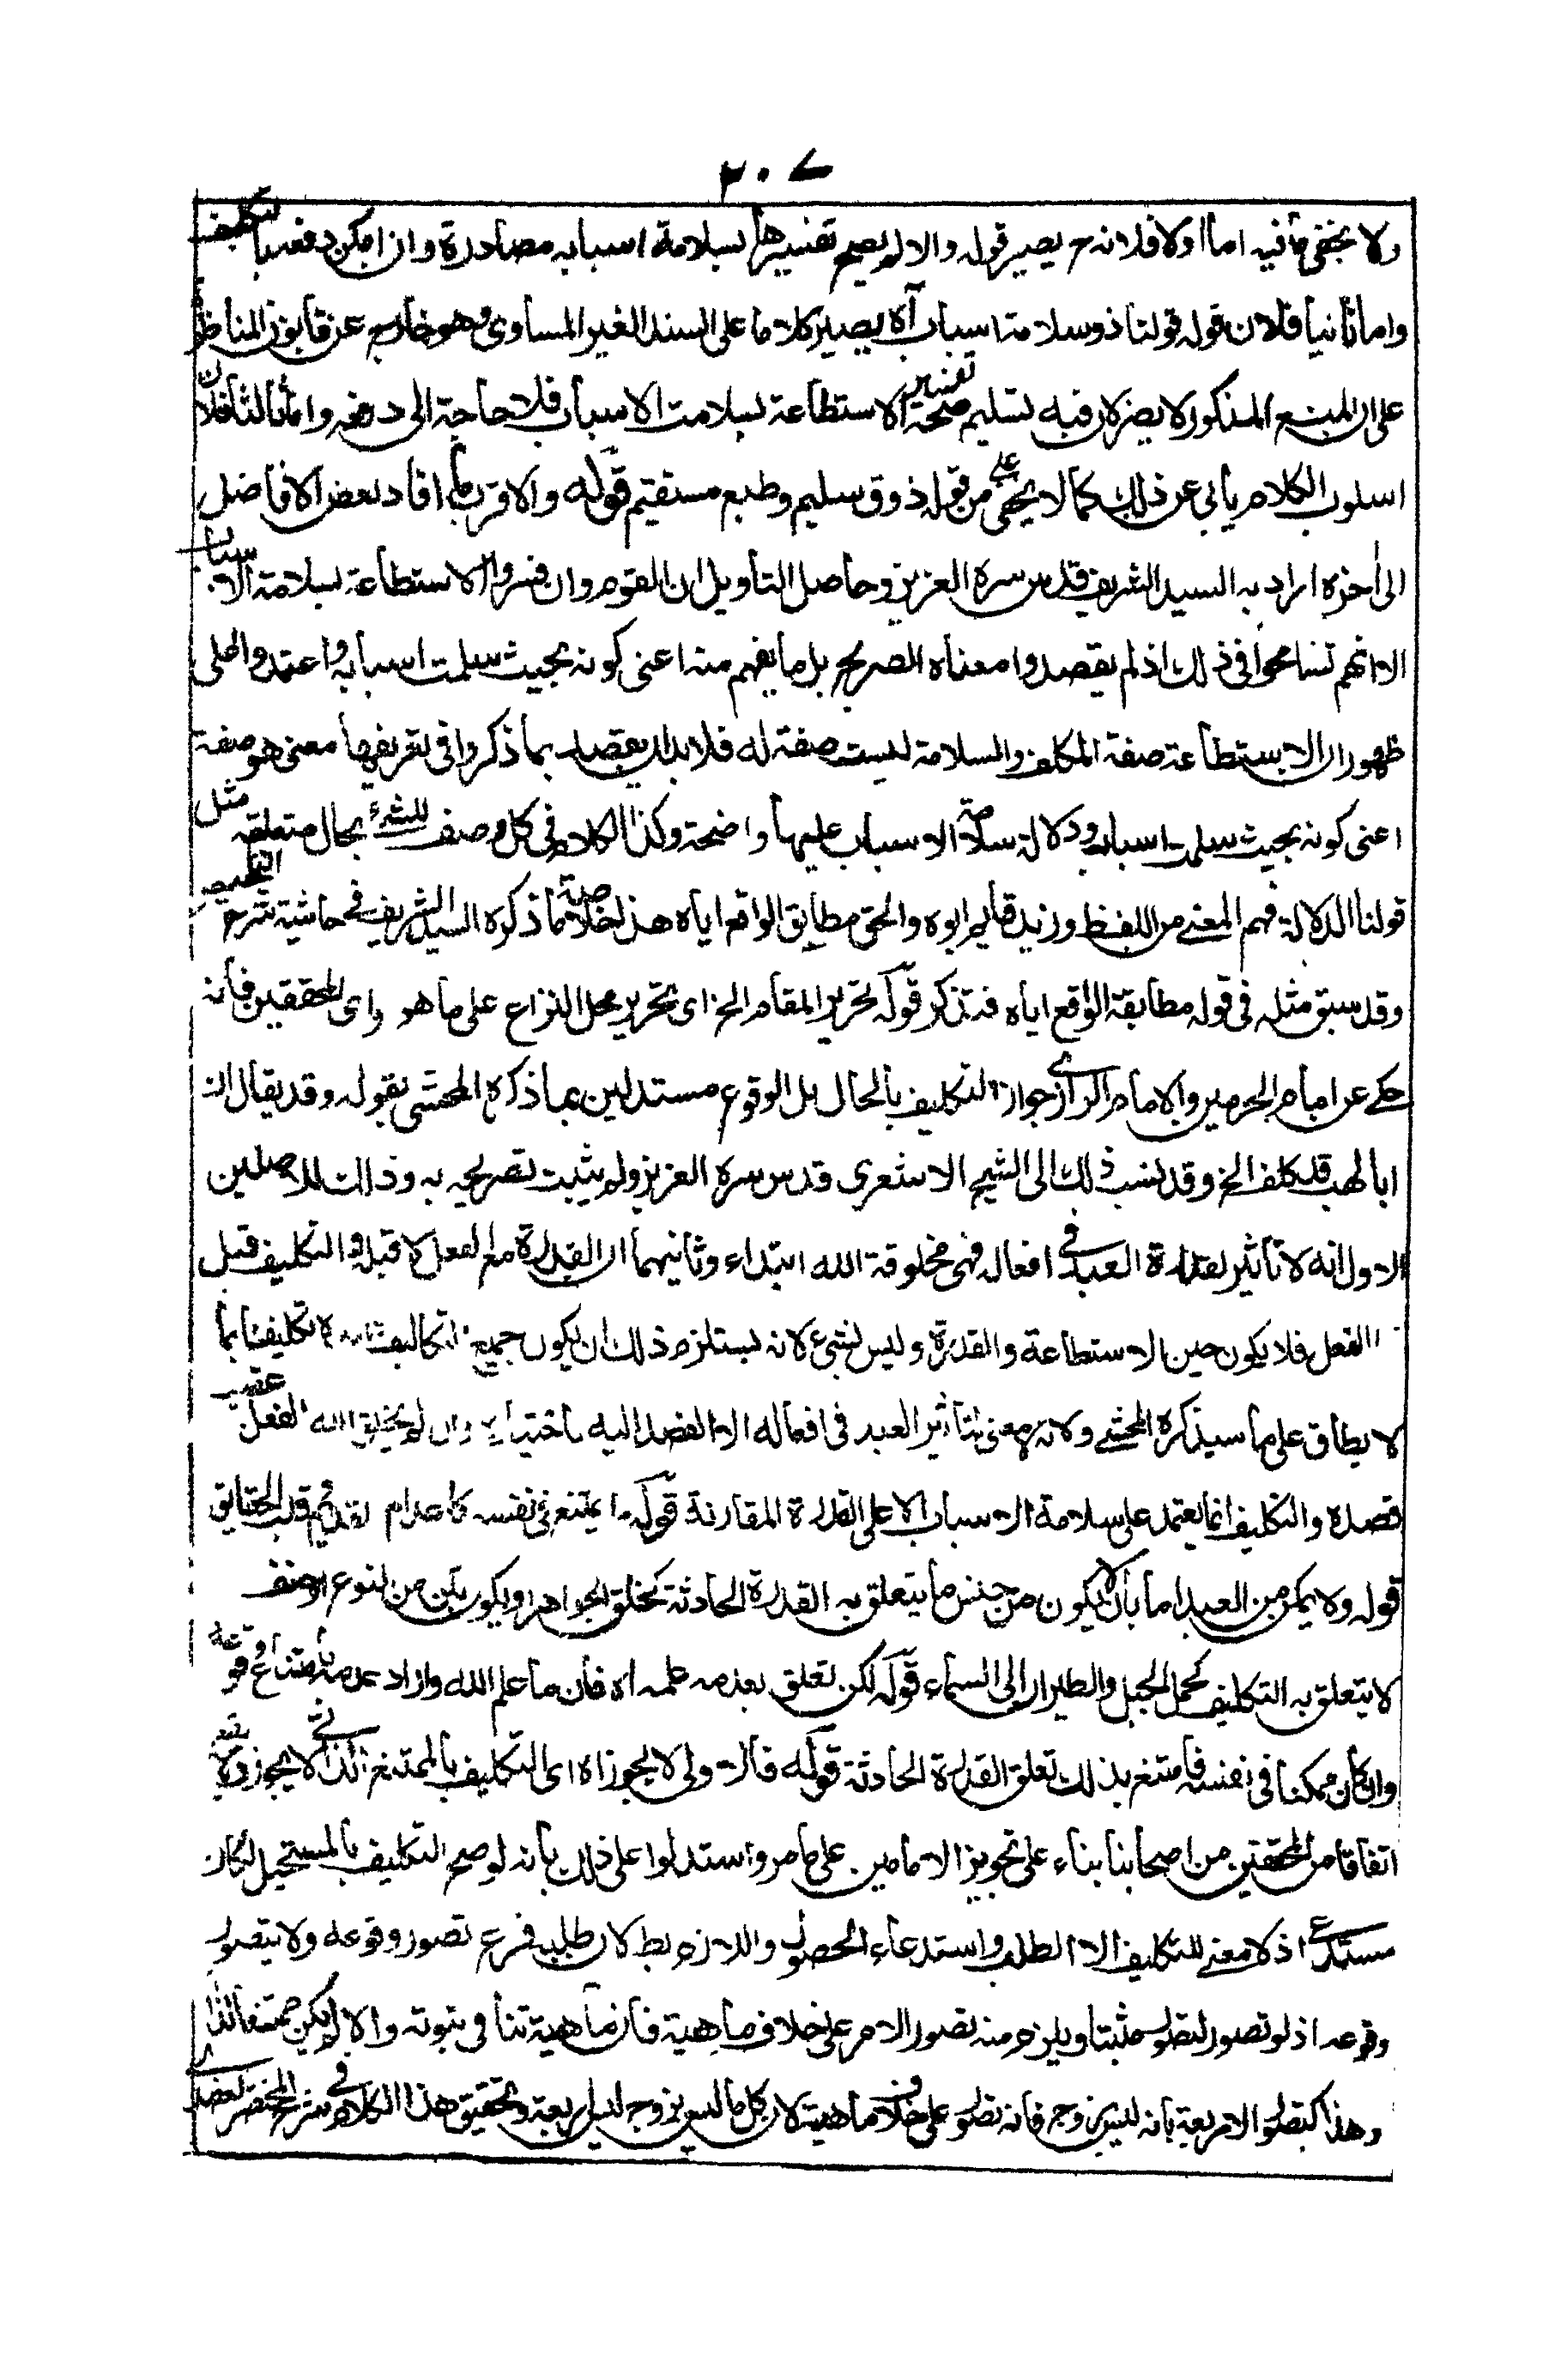 ٣٠٧
ولا يخفى ما فيه اما اولا فلانه ح يصير قوله والا لم يصح تفسيرها بسلامة اسبابه مصادرة وان امكن دفعه بالتكليف
واما ثانيا فلان قوله قولنا ذو سلامة اسباب آه يصير كلاما على السند الغير المساوى وهو خارج عن قانون المناظرة
على ان المنع المذكور لا يضر لان فيه تسليم صحة تفسير الاستطاعة بسلامت الاسباب فلا حاجة الى دفعه واما ثالثا فلان
اسلوب الكلام يأبى عن ذلك كما لا يخفى على من له ذوق سليم وطبع مستقيم قوله والاقرب ما افاد بعض الافاضل
الى آخره اراد به السيد الشريف قدس سره العزيز وحاصل التأويل ان القوم وان فسروا الاستطاعة بسلامة الاسباب
الا انهم تسامحوا فى ذلك اذ لم يقصدوا معناه الصريح بل ما يفهم منه اعنى كونه بحيث سلمت اسبابه واعتمدوا على
ظهور ان الاستطاعة صفة المكلف والسلامة ليست صفة له فلا بد ان يقصد بما ذكروا فى تعريفها معنى هو صفة
اعنى كونه بحيث سلمت اسبابه ودلالة سلامة الاسباب عليها واضحة وكذا الكلام فى كل وصف للشئ بحال متعلقه مثل
قولنا الدلالة فهم المعنى من اللفظ وزيد قايم ابوه والحق مطابق الواقع اياه هذا خلاصة ما ذكره السيد الشريف فى حاشية شرح التلخيص
وقد سبق مثله فى قوله مطابقة الواقع اياه فتذكر قوله تحرير المقام الخ اى تحرير محل النزاع على ما هو راى المحققين فانه
حكى عن امام الحرمين والامام الرازى جواز التكليف بالمحال بل الوقوع مستدلين بما ذكره المحشى بقوله وقد يقال ان
ابا لهب قد كلف الخ وقد نسب ذلك الى الشيخ الاشعرى قدس سره العزيز ولم يثبت تصريحه به وذلك للاصلين
الاول انه لا تأثير لقدرة العبد فى افعاله فهى مخلوقة الله ابتداء وثانيهما ان القدرة مع الفعل لا قبله والتكليف قبل
الفعل فلا يكون حين الاستطاعة والقدرة وليس بشئ لانه يستلزم ذلك ان يكون جميع التكاليف تكليفا بما
لا يطاق على ما سيذكره المحشى ولانه لا معنى لتأثير العبد فى افعاله الا القصد اليه باختياره وان لم يخلق الله الفعل عقيب
قصده والتكليف انما يعتمد على سلامة الاسباب لا على القدرة المقارنة قوله ما يمتنع فى نفسه كاعدام القديم وقلب الحقايق
قوله ولا يمكن من العبد اما بان لا يكون من جنس ما يتعلق به القدرة الحادثة كخلق الجواهر او يكون لكن من نوع او صنف
لا يتعلق به التكليف كحمل الجبل والطيران الى السماء قوله لكن تعلق بعدمه علمه اه فان ما علم الله واراد عدمه امتنع وقوعه
وان كان ممكنا فى نفسه فامتنع بذلك تعلق القدرة الحادثة قوله قال ولى لا يجوز اه اى التكليف بالممتنع الذاتى لا يجوز ولا يقع
اتفاقا من المحققين من اصحابنا بناء على تجويز الامامين على ما مر واستدلوا على ذلك بانه لو صح التكليف بالمستحيل لكان
مستدعى اذ لا معنى للتكليف الا الطلب واستدعاء الحصول واللازم بط لان طلبه فرع تصور وقوعه ولا يتصور
وقوعه اذ لو تصور لتصور مثبتا ويلزم منه تصور الامر على خلاف ماهية فان ماهية تنافى ثبوته والا لم يكن ممتنعا لذاته
وهذا كتصور الاربعة بانه ليس بزوج فانه تصور على خلاف ماهية لان كل ما ليس بزوج ليس باربعة وتحقيق هذا الكلام فى شرح المختصر العضدى